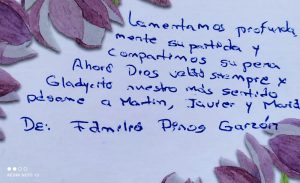 Lamentamos profunda
mente su partida y
compartimos su pena
Ahora Dios velará siempre x
Gladycita nuestro más sentido
pésame a Martin, Javier y
De: Familia Pinos Garzón